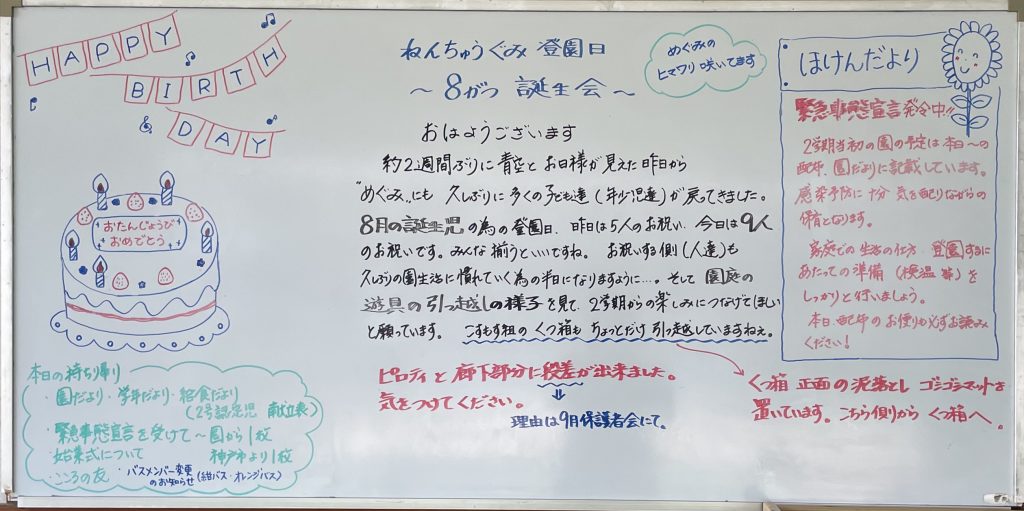 HAPPY
BIRTH
DAY
おたんじょうび
おめでとう
ねんちゅうぐみ 登園日
～ 8がつ 誕生会 ～
めぐみの
ヒマワリ 咲いてます
おはようございます
約2週間ぶりに 青空と お日様が 見えた 昨日から
"めぐみ"にも 久しぶりに 多くの 子ども達(年少児達)が 戻ってきました。
8月の誕生児の為の登園日、昨日は5人のお祝い、今日は9人
のお祝いです。みんな揃うといいですね。 お祝いする側(人達)も
久しぶりの園生活に慣れていく為の半日になりますように…。そして 園庭の
遊具の引っ越しの様子を見て、2学期からの楽しみにつなげてほしい
と願っています。 こすもす組の くつ箱も ちょっとだけ 引っ越していますねぇ。
ピロティと 廊下部分に段差が出来ました。
気をつけてください。
⇓
理由は9月保護者会にて。
くつ箱 正面の泥落とし ゴシゴシマットを
置いています。こちら側から くつ箱へ。
ほけんだより
緊急事態宣言発令中!!
2学期当初の園の予定は本日～の
配布、園だよりに記載しています。
感染予防に十分 気を配りながらの
保育となります。
家庭での生活の仕方、登園するに
あたっての準備(検温 等)を
しっかりと行いましょう。
本日、配布のお便りも必ずお読み
ください!
本日の持ち帰り
・園だより・学年だより・給食だより
(2号認定児 献立表)
・緊急事態宣言を受けて～園から1枚
・始業式について 神戸市より1枚
・こころの友 ・バスメンバー変更
のお知らせ(紺バス・オレンジバス)